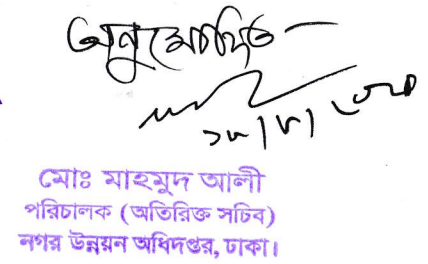 অনুমোদিত
১৮/৮/২০২০
মোঃ মাহমুদ আলী
পরিচালক (অতিরিক্ত সচিব)
নগর উন্নয়ন অধিদপ্তর, ঢাকা।